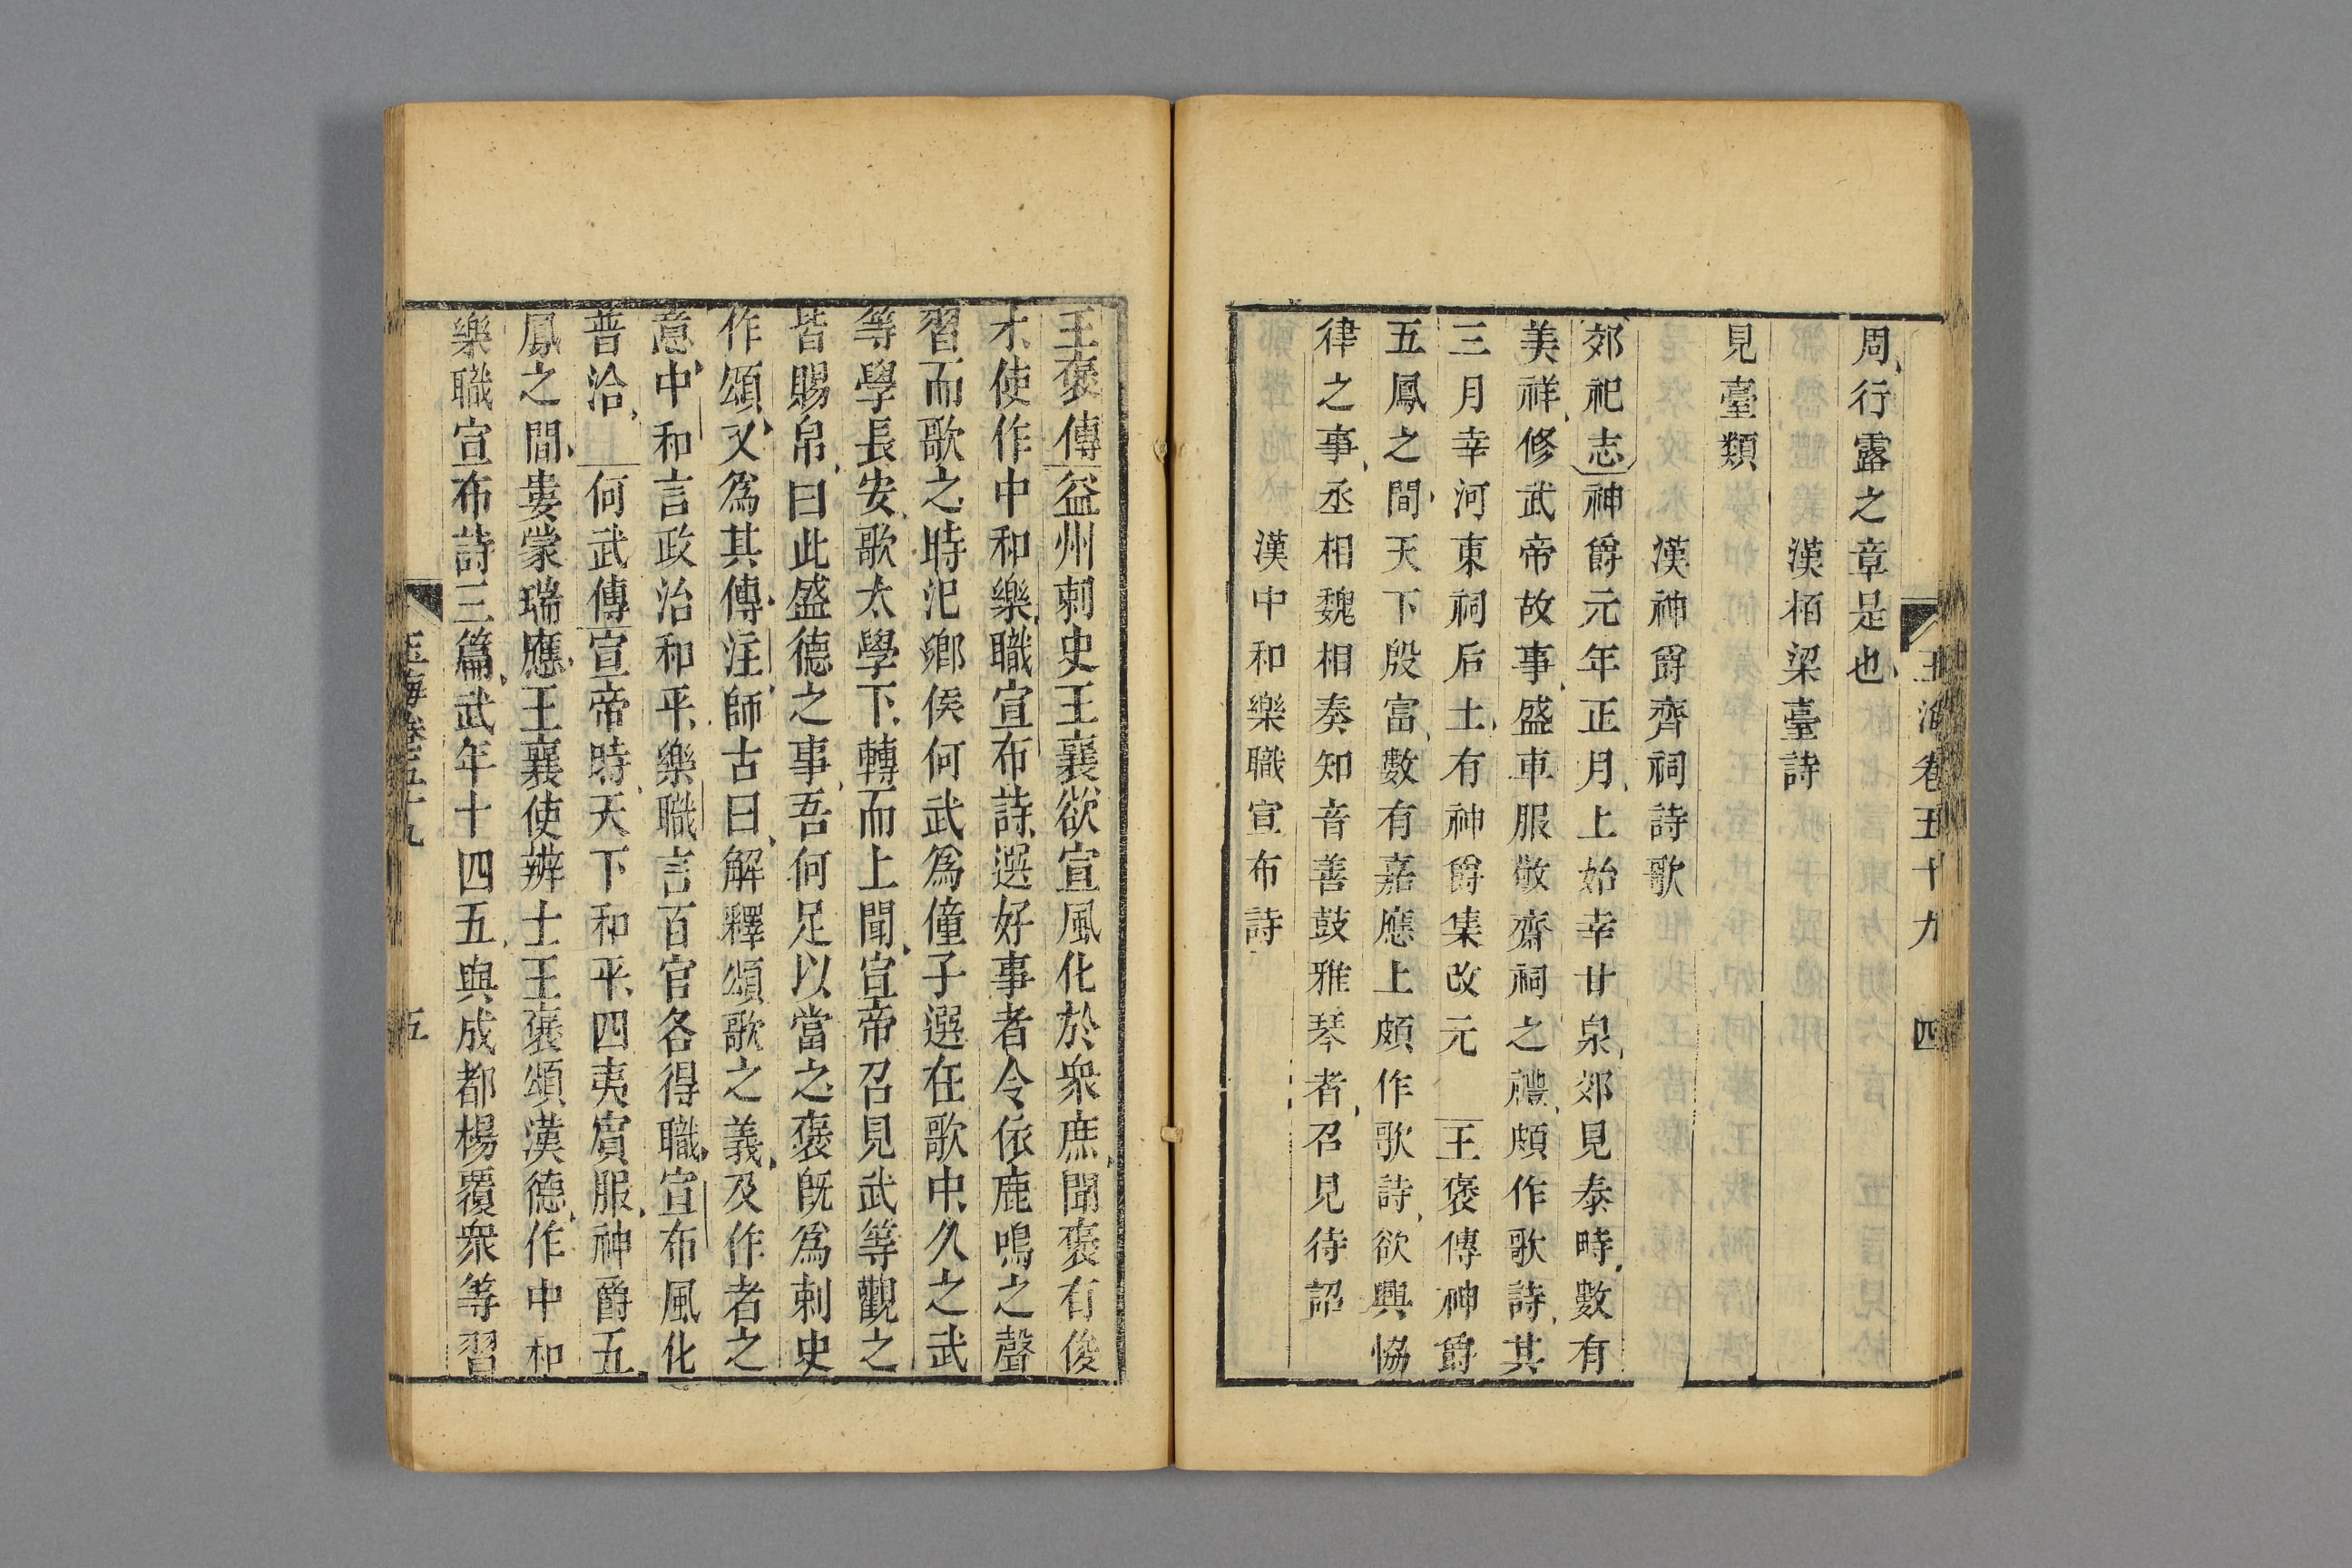 玉海卷五十九 四
周行露之章是也
漢栢梁臺詩
見臺類
漢神爵齊祠詩歌
郊祀志神爵元年正月上始幸甘泉郊見泰畤數有
美祥修武帝故事盛車服敬齋祠之禮頗作歌詩其
三月幸河東祠后土有神爵集改元 王褒傳神爵
五鳳之間天下殷富數有嘉應上頗作歌詩欲興恊
律之事丞相魏相奏知音善鼓雅琴者召見待詔
漢中和樂職宣布詩
王褒傳益州刺史王襄欲宣風化於衆庶聞褒有俊
才使作中和樂職宣布詩選好事者令依鹿鳴之聲
習而歌之時汜鄉侯何武爲僮子選在歌中久之武
等學長安歌太學下轉而上聞宣帝召見武等觀之
皆賜帛曰此盛德之事吾何足以當之褒旣爲刺史
作頌又爲其傳注師古曰解釋頌歌之義及作者之
意中和言政治和平樂職言百官各得職宣布風化
普洽 何武傳宣帝時天下和平四夷賓服神爵五
鳳之間婁蒙瑞應王襄使辨士王褒頌漢德作中和
樂職宣布詩三篇武年十四五與成都楊覆衆等習
玉海卷五十九 五